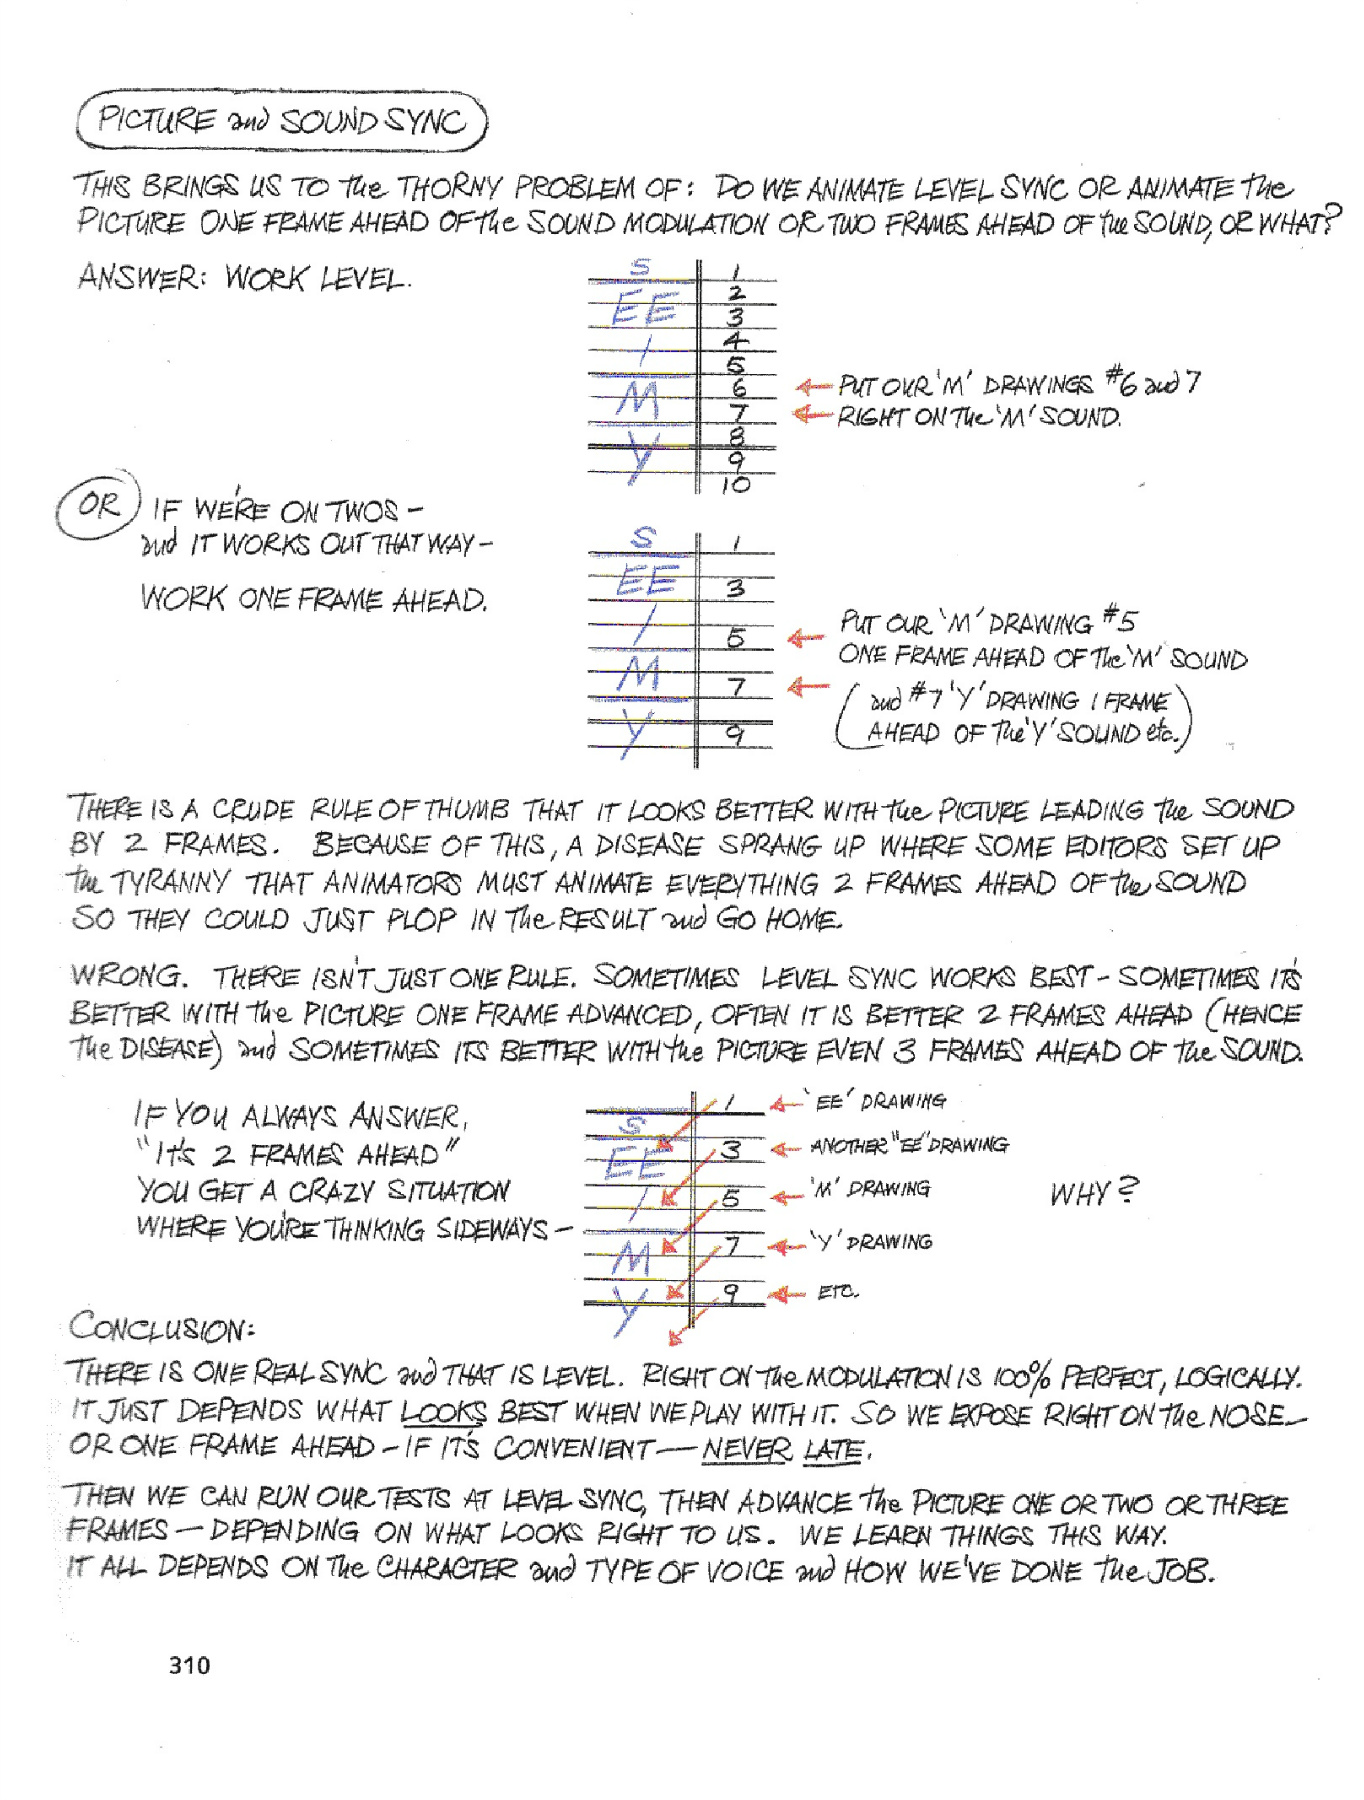 PICTURE and SOUND SYNC
THIS BRINGS US TO the THORNY PROBLEM OF: DO WE ANIMATE LEVEL SYNC OR ANIMATE the
PICTURE ONE FRAME AHEAD OF the SOUND MODULATION OR TWO FRAMES AHEAD OF the SOUND, OR WHAT?
ANSWER: WORK LEVEL.
S 1
2
EE 3
4
I 5
6
M 7
8
Y 9
10
← PUT OUR 'M' DRAWINGS #6 and 7
← RIGHT ON The 'M' SOUND.
OR IF WE'RE ON TWOS –
and IT WORKS OUT THAT WAY –
WORK ONE FRAME AHEAD.
S 1
EE 3
I 5
M 7
Y 9
← PUT OUR 'M' DRAWING #5
ONE FRAME AHEAD OF The 'M' SOUND
← (and #7 'Y' DRAWING 1 FRAME
AHEAD OF The 'Y' SOUND etc.)
THERE IS A CRUDE RULE OF THUMB THAT IT LOOKS BETTER WITH the PICTURE LEADING the SOUND
BY 2 FRAMES. BECAUSE OF THIS, A DISEASE SPRANG UP WHERE SOME EDITORS SET UP
the TYRANNY THAT ANIMATORS MUST ANIMATE EVERYTHING 2 FRAMES AHEAD OF the SOUND
SO THEY COULD JUST PLOP IN The RESULT and GO HOME.
WRONG. THERE ISN'T JUST ONE RULE. SOMETIMES LEVEL SYNC WORKS BEST – SOMETIMES IT'S
BETTER WITH the PICTURE ONE FRAME ADVANCED, OFTEN IT IS BETTER 2 FRAMES AHEAD (HENCE
The DISEASE) and SOMETIMES IT'S BETTER WITH the PICTURE EVEN 3 FRAMES AHEAD OF the SOUND.
IF YOU ALWAYS ANSWER,
"It's 2 FRAMES AHEAD"
YOU GET A CRAZY SITUATION
WHERE YOU'RE THINKING SIDEWAYS –
1 ← 'EE' DRAWING
S
3 ← ANOTHER "EE" DRAWING
EE
I 5 ← 'M' DRAWING
M 7 ← 'Y' DRAWING
Y 9 ← ETC.
WHY?
CONCLUSION:
THERE IS ONE REAL SYNC and THAT IS LEVEL. RIGHT ON The MODULATION IS 100% PERFECT, LOGICALLY.
IT JUST DEPENDS WHAT LOOKS BEST WHEN WE PLAY WITH IT. SO WE EXPOSE RIGHT ON The NOSE –
OR ONE FRAME AHEAD – IF IT'S CONVENIENT — NEVER LATE.
THEN WE CAN RUN OUR TESTS AT LEVEL SYNC, THEN ADVANCE the PICTURE ONE OR TWO OR THREE
FRAMES – DEPENDING ON WHAT LOOKS RIGHT TO US. WE LEARN THINGS THIS WAY.
IT ALL DEPENDS ON The CHARACTER and TYPE OF VOICE and HOW WE'VE DONE The JOB.
310